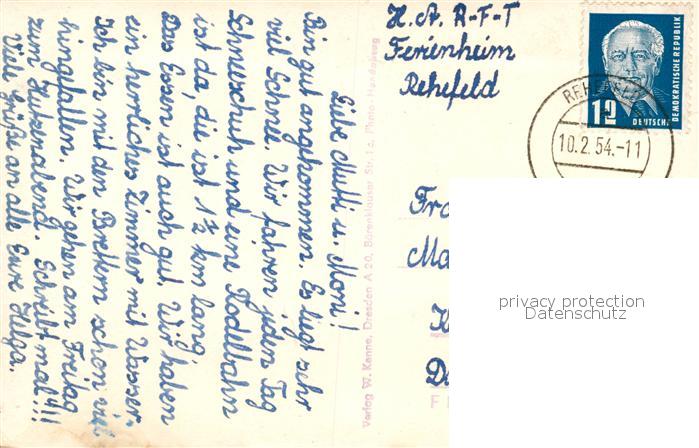 Liebe Mutti u. Moni!
Bin gut angekommen. Es liegt sehr
viel Schnee. Wir fahren jeden Tag
Schneeschuh und eine Rodelbahn
ist da, die ist 1½ km lang.
Das Essen ist auch gut. Wir haben
ein herrliches Zimmer mit Wasser.
Ich bin mit den Brettern schon viel
hingfallen. Wir gehen am Freitag
zum Hutzenabend. Schreibt mal!!!
Viele Grüße an alle Eure Helga.
Verlag W. Kenne, Dresden A 20, Bärenklauser Str. 1c, Photo-Handabzug
H. A. R-F-T
Ferienheim
Rehefeld
12
DEUTSCHE
DEMOKRATISCHE REPUBLIK
REHEFELD
10.2.54.-11
Fra
Ma
D
F
privacy protection
Datenschutz